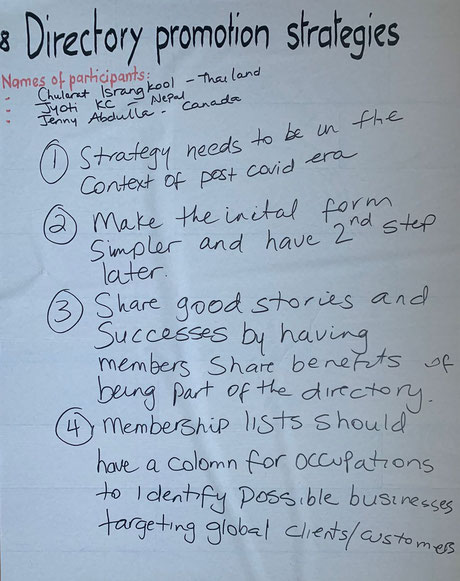 8 Directory promotion strategies
Names of participants:
- Chularat Israngkool - Thailand
- Jyoti KC - Nepal
- Jenny Abdulla - Canada
1 Strategy needs to be in the
Context of post covid era
2 Make the inital form
Simpler and have 2nd step
later.
3 Share good stories and
Successes by having
members Share benefits of
being part of the directory.
4 Membership lists should
have a colomn for occupations
to Identify possible businesses
targeting global clients/customers